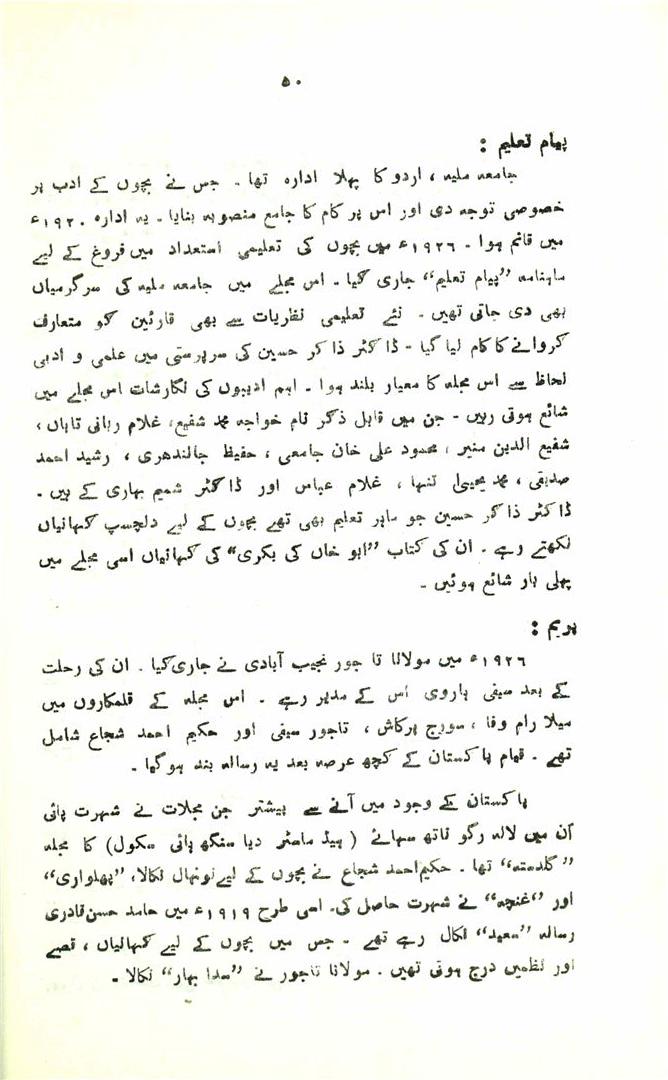 ۵۰
پیام تعلیم :
جامعہ ملیہ ، اردو کا پہلا ادارہ تھا ۔ جس نے بچوں کے ادب پر
خصوصی توجہ دی اور اس پر کام کا جامع منصوبہ بنایا ۔ یہ ادارہ ۱۹۲۰ء
میں قائم ہوا ۔ ۱۹۲۶ء میں بچوں کی تعلیمی استعداد میں فروغ کے لیے
ماہنامہ ”پیام تعلیم“ جاری کیا ۔ اس مجلے میں جامعہ ملیہ کی سرگرمیاں
بھی دی جاتی تھیں ۔ نئے تعلیمی نظریات سے بھی قارئین کو متعارف
کروانے کا کام لیا گیا ۔ ڈاکٹر ذاکر حسین کی سرپرستی میں علمی و ادبی
لحاظ سے اس مجلہ کا معیار بلند ہوا ۔ اہم ادیبوں کی نگارشات اس مجلے میں
شائع ہوتی رہیں ۔ جن میں قابل ذکر نام خواجہ محمد شفیع، غلام ربانی تاباں ،
شفیع الدین منیر ، محمود علی خان جامعی ، حفیظ جالندھری ، رشید احمد
صدیقی ، محمد یحییٰ تنہا ، غلام عباس اور ڈاکٹر شمیم بہاری کے ہیں ۔
ڈاکٹر ذاکر حسین جو ماہر تعلیم بھی تھے بچوں کے لیے دلچسپ کہانیاں
لکھتے رہے ۔ ان کی کتاب ”ابو خاں کی بکری“ کی کہانیاں اسی مجلے میں
پہلی بار شائع ہوئیں ۔
پریم :
۱۹۲۶ء میں مولانا تاجور نجیب آبادی نے جاری کیا ۔ ان کی رحلت
کے بعد سیفی ہاروی اس کے مدیر رہے ۔ اس مجلہ کے قلمکاروں میں
میلا رام وفا ، سورج پرکاش ، تاجور سیفی اور حکیم احمد شجاع شامل
تھے ۔ قیام پاکستان کے کچھ عرصہ بعد یہ رسالہ بند ہوگیا ۔
پاکستان کے وجود میں آنے سے پیشتر جن مجلات نے شہرت پائی
ان میں لالہ رگو ناتھ سہائے ( ہیڈ ماسٹر دیا سنگھ ہائی سکول) کا مجلہ
”گلدستہ“ تھا ۔ حکیم احمد شجاع نے بچوں کے لیے نونہال نکالا، ”پھلواری“
اور ”غنچہ“ نے شہرت حاصل کی۔ اسی طرح ۱۹۱۹ء میں حامد حسن قادری
رسالہ ”سعید“ نکال رہے تھے ۔ جس میں بچوں کے لیے کہانیاں ، قصے
اور نظمیں درج ہوتی تھیں ۔ مولانا تاجور نے ”سدا بہار“ نکالا ۔